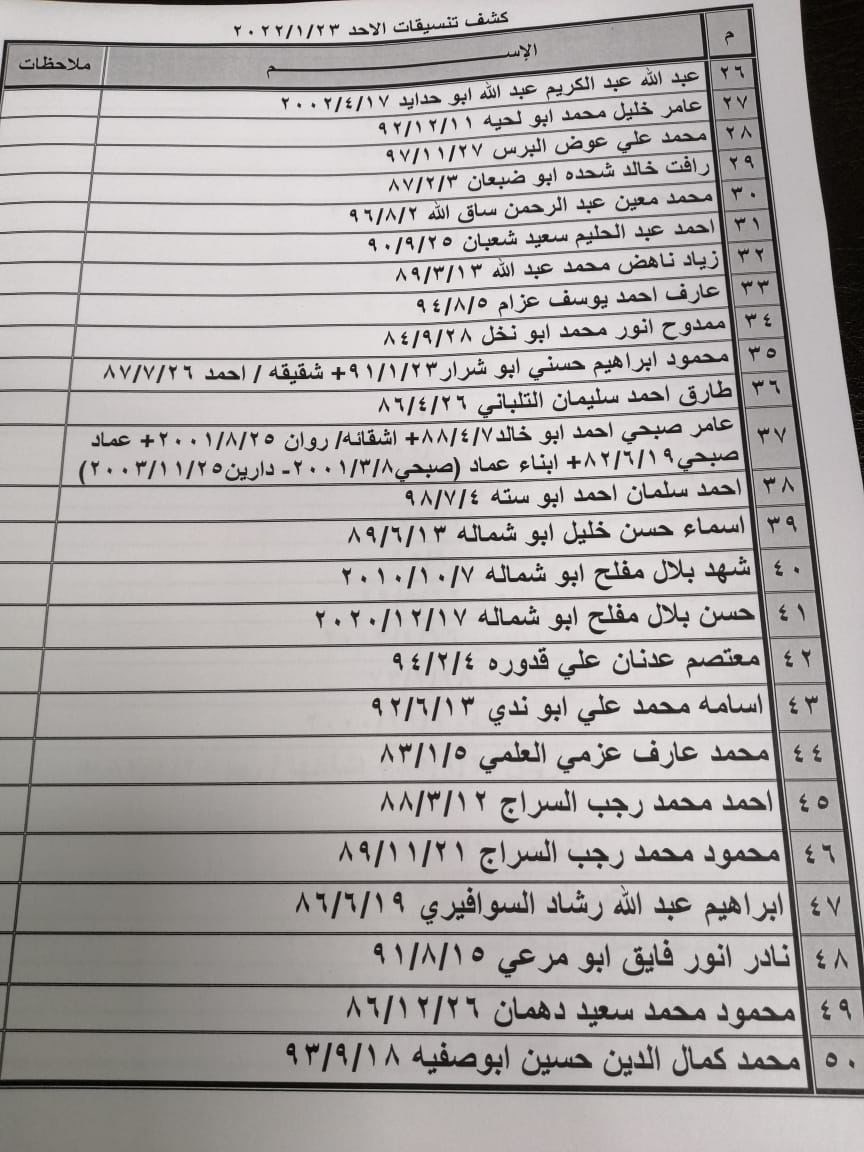 كشف تنسيقات الاحد ٢٠٢٢/١/٢٣
م الإســـــــــــم ملاحظات
٢٦ عبد الله عبد الكريم عبد الله ابو حدايد ٢٠٠٢/٤/١٧
٢٧ عامر خليل محمد ابو لحيه ٩٢/١٢/١١
٢٨ محمد علي عوض البرس ٩٧/١١/٢٧
٢٩ رافت خالد شحده ابو ضبعان ٨٧/٢/٣
٣٠ محمد معين عبد الرحمن ساق الله ٩٦/٨/٢
٣١ احمد عبد الحليم سعيد شعبان ٩٠/٩/٢٥
٣٢ زياد ناهض محمد عبد الله ٨٩/٣/١٣
٣٣ عارف احمد يوسف عزام ٩٤/٨/٥
٣٤ ممدوح انور محمد ابو نخل ٨٤/٩/٢٨
٣٥ محمود ابراهيم حسني ابو شرار٩١/١/٢٣+ شقيقه / احمد ٨٧/٧/٢٦
٣٦ طارق احمد سليمان التلباني ٨٦/٤/٢٦
٣٧ عامر صبحي احمد ابو خالد٨٨/٤/٧+ اشقائه/ روان ٢٠٠١/٨/٢٥+ عماد
صبحي٨٢/٦/١٩+ ابناء عماد (صبحي٢٠٠١/٣/٨- دارين٢٠٠٣/١١/٢٥)
٣٨ احمد سلمان احمد ابو سته ٩٨/٧/٤
٣٩ اسماء حسن خليل ابو شماله ٨٩/٦/١٣
٤٠ شهد بلال مفلح ابو شماله ٢٠١٠/١٠/٧
٤١ حسن بلال مفلح ابو شماله ٢٠٢٠/١٢/١٧
٤٢ معتصم عدنان علي قدوره ٩٤/٢/٤
٤٣ اسامه محمد علي ابو ندي ٩٢/٦/١٣
٤٤ محمد عارف عزمي العلمي ٨٣/١/٥
٤٥ احمد محمد رجب السراج ٨٨/٣/١٢
٤٦ محمود محمد رجب السراج ٨٩/١١/٢١
٤٧ ابراهيم عبد الله رشاد السوافيري ٨٦/٦/١٩
٤٨ نادر انور فايق ابو مرعي ٩١/٨/١٥
٤٩ محمود محمد سعيد دهمان ٨٦/١٢/٢٦
٥٠ محمد كمال الدين حسين ابوصفيه ٩٣/٩/١٨